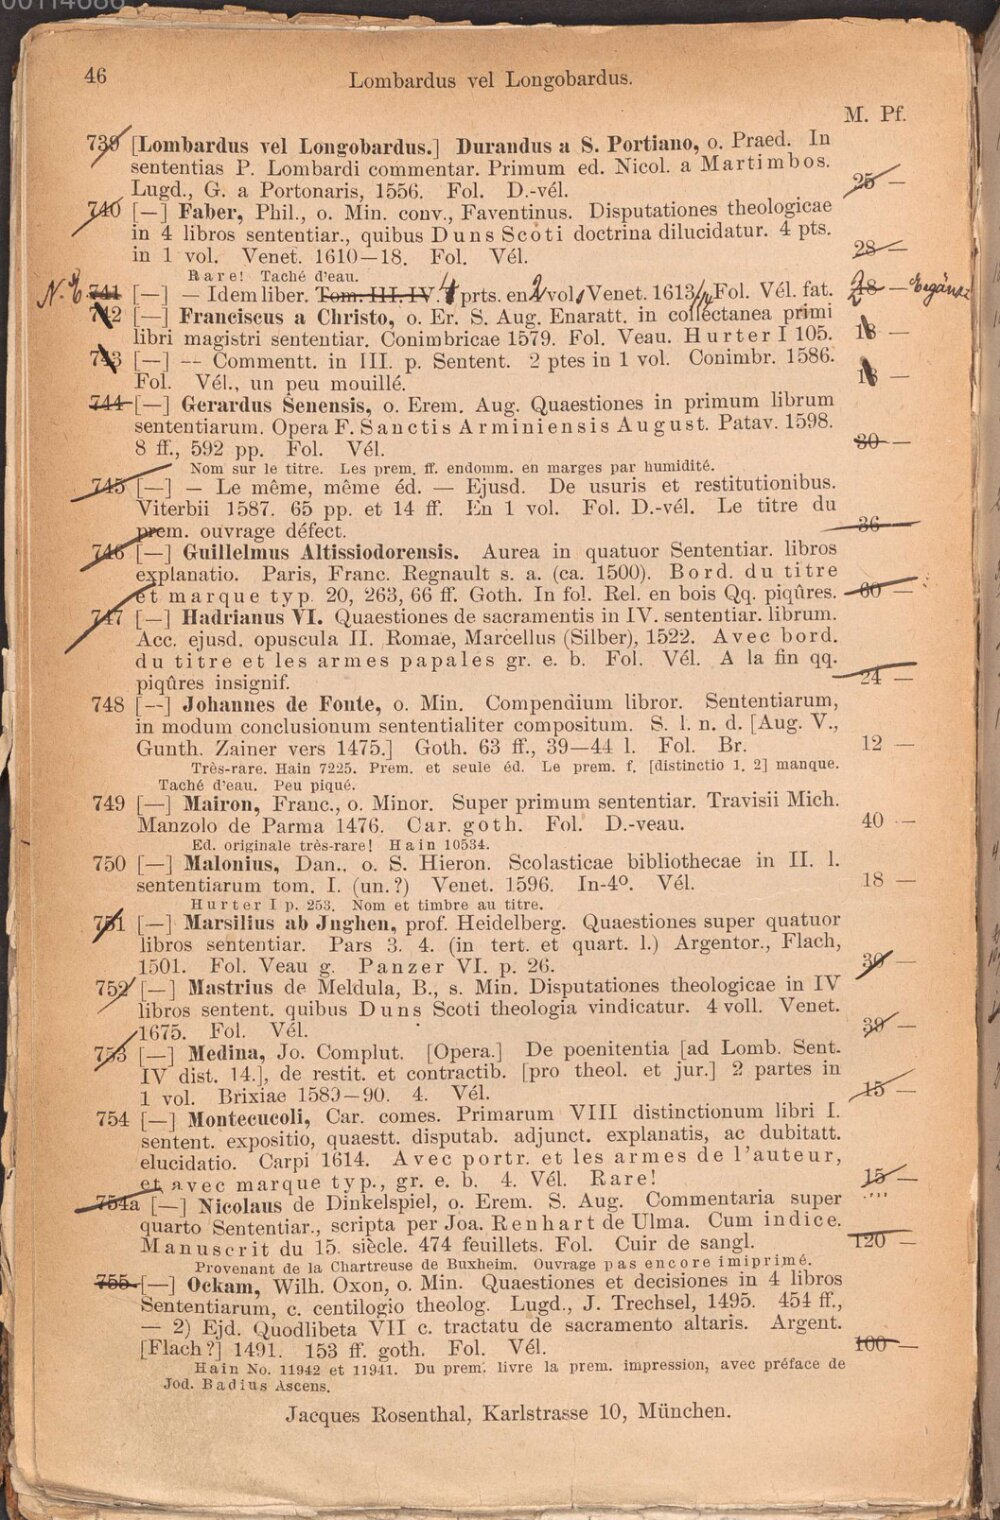 46
Lombardus vel Longobardus.
M. Pf.
739 [Lombardus vel Longobardus.] Durandus a S. Portiano, o. Praed. In
sententias P. Lombardi commentar. Primum ed. Nicol. a Martimbos.
Lugd., G. a Portonaris, 1556. Fol. D.-vél. 25 —
740 [—] Faber, Phil., o. Min. conv., Faventinus. Disputationes theologicae
in 4 libros sententiar., quibus Duns Scoti doctrina dilucidatur. 4 pts.
in 1 vol. Venet. 1610—18. Fol. Vél. 28 —
Rare! Taché d'eau.
N. E. 741 [—] — Idem liber. Tom. III. IV. 4 prts. en 2 vol. Venet. 1613/ Fol. Vél. fat. 28 — Ergänzt
742 [—] Franciscus a Christo, o. Er. S. Aug. Enaratt. in collectanea primi
libri magistri sententiar. Conimbricae 1579. Fol. Veau. Hurter I 105. 18 —
743 [—] — Commentt. in III. p. Sentent. 2 ptes in 1 vol. Conimbr. 1586.
Fol. Vél., un peu mouillé. 18 —
744 [—] Gerardus Senensis, o. Erem. Aug. Quaestiones in primum librum
sententiarum. Opera F. Sanctis Arminiensis August. Patav. 1598.
8 ff., 592 pp. Fol. Vél. 30 —
Nom sur le titre. Les prem. ff. endomm. en marges par humidité.
745 [—] — Le même, même éd. — Ejusd. De usuris et restitutionibus.
Viterbii 1587. 65 pp. et 14 ff. En 1 vol. Fol. D.-vél. Le titre du
prem. ouvrage défect. 36 —
746 [—] Guillelmus Altissiodorensis. Aurea in quatuor Sententiar. libros
explanatio. Paris, Franc. Regnault s. a. (ca. 1500). Bord. du titre
et marque typ. 20, 263, 66 ff. Goth. In fol. Rel. en bois Qq. piqûres. 60 —
747 [—] Hadrianus VI. Quaestiones de sacramentis in IV. sententiar. librum.
Acc. ejusd. opuscula II. Romae, Marcellus (Silber), 1522. Avec bord.
du titre et les armes papales gr. e. b. Fol. Vél. A la fin qq.
piqûres insignif. 24 —
748 [—] Johannes de Fonte, o. Min. Compendium libror. Sententiarum,
in modum conclusionum sententialiter compositum. S. l. n. d. [Aug. V.,
Gunth. Zainer vers 1475.] Goth. 63 ff., 39—44 l. Fol. Br. 12 —
Très-rare. Hain 7225. Prem. et seule éd. Le prem. f. [distinctio 1. 2] manque.
Taché d'eau. Peu piqué.
749 [—] Mairon, Franc., o. Minor. Super primum sententiar. Travisii Mich.
Manzolo de Parma 1476. Car. goth. Fol. D.-veau. 40 —
Ed. originale très-rare! Hain 10534.
750 [—] Malonius, Dan., o. S. Hieron. Scolasticae bibliothecae in II. l.
sententiarum tom. I. (un.?) Venet. 1596. In-4º. Vél. 18 —
Hurter I p. 253. Nom et timbre au titre.
751 [—] Marsilius ab Jnghen, prof. Heidelberg. Quaestiones super quatuor
libros sententiar. Pars 3. 4. (in tert. et quart. l.) Argentor., Flach,
1501. Fol. Veau g. Panzer VI. p. 26. 30 —
752 [—] Mastrius de Meldula, B., s. Min. Disputationes theologicae in IV
libros sentent. quibus Duns Scoti theologia vindicatur. 4 voll. Venet.
1675. Fol. Vél. 30 —
753 [—] Medina, Jo. Complut. [Opera.] De poenitentia [ad Lomb. Sent.
IV dist. 14.], de restit. et contractib. [pro theol. et jur.] 2 partes in
1 vol. Brixiae 1589—90. 4. Vél. 15 —
754 [—] Montecucoli, Car. comes. Primarum VIII distinctionum libri I.
sentent. expositio, quaestt. disputab. adjunct. explanatis, ac dubitatt.
elucidatio. Carpi 1614. Avec portr. et les armes de l'auteur,
et avec marque typ., gr. e. b. 4. Vél. Rare! 15 —
754a [—] Nicolaus de Dinkelspiel, o. Erem. S. Aug. Commentaria super
quarto Sententiar., scripta per Joa. Renhart de Ulma. Cum indice.
Manuscrit du 15. siècle. 474 feuillets. Fol. Cuir de sangl. 120 —
Provenant de la Chartreuse de Buxheim. Ouvrage pas encore imiprimé.
755 [—] Ockam, Wilh. Oxon, o. Min. Quaestiones et decisiones in 4 libros
Sententiarum, c. centilogio theolog. Lugd., J. Trechsel, 1495. 454 ff.,
— 2) Ejd. Quodlibeta VII c. tractatu de sacramento altaris. Argent.
[Flach?] 1491. 153 ff. goth. Fol. Vél. 100 —
Hain No. 11942 et 11941. Du prem. livre la prem. impression, avec préface de
Jod. Badius Ascens.
Jacques Rosenthal, Karlstrasse 10, München.